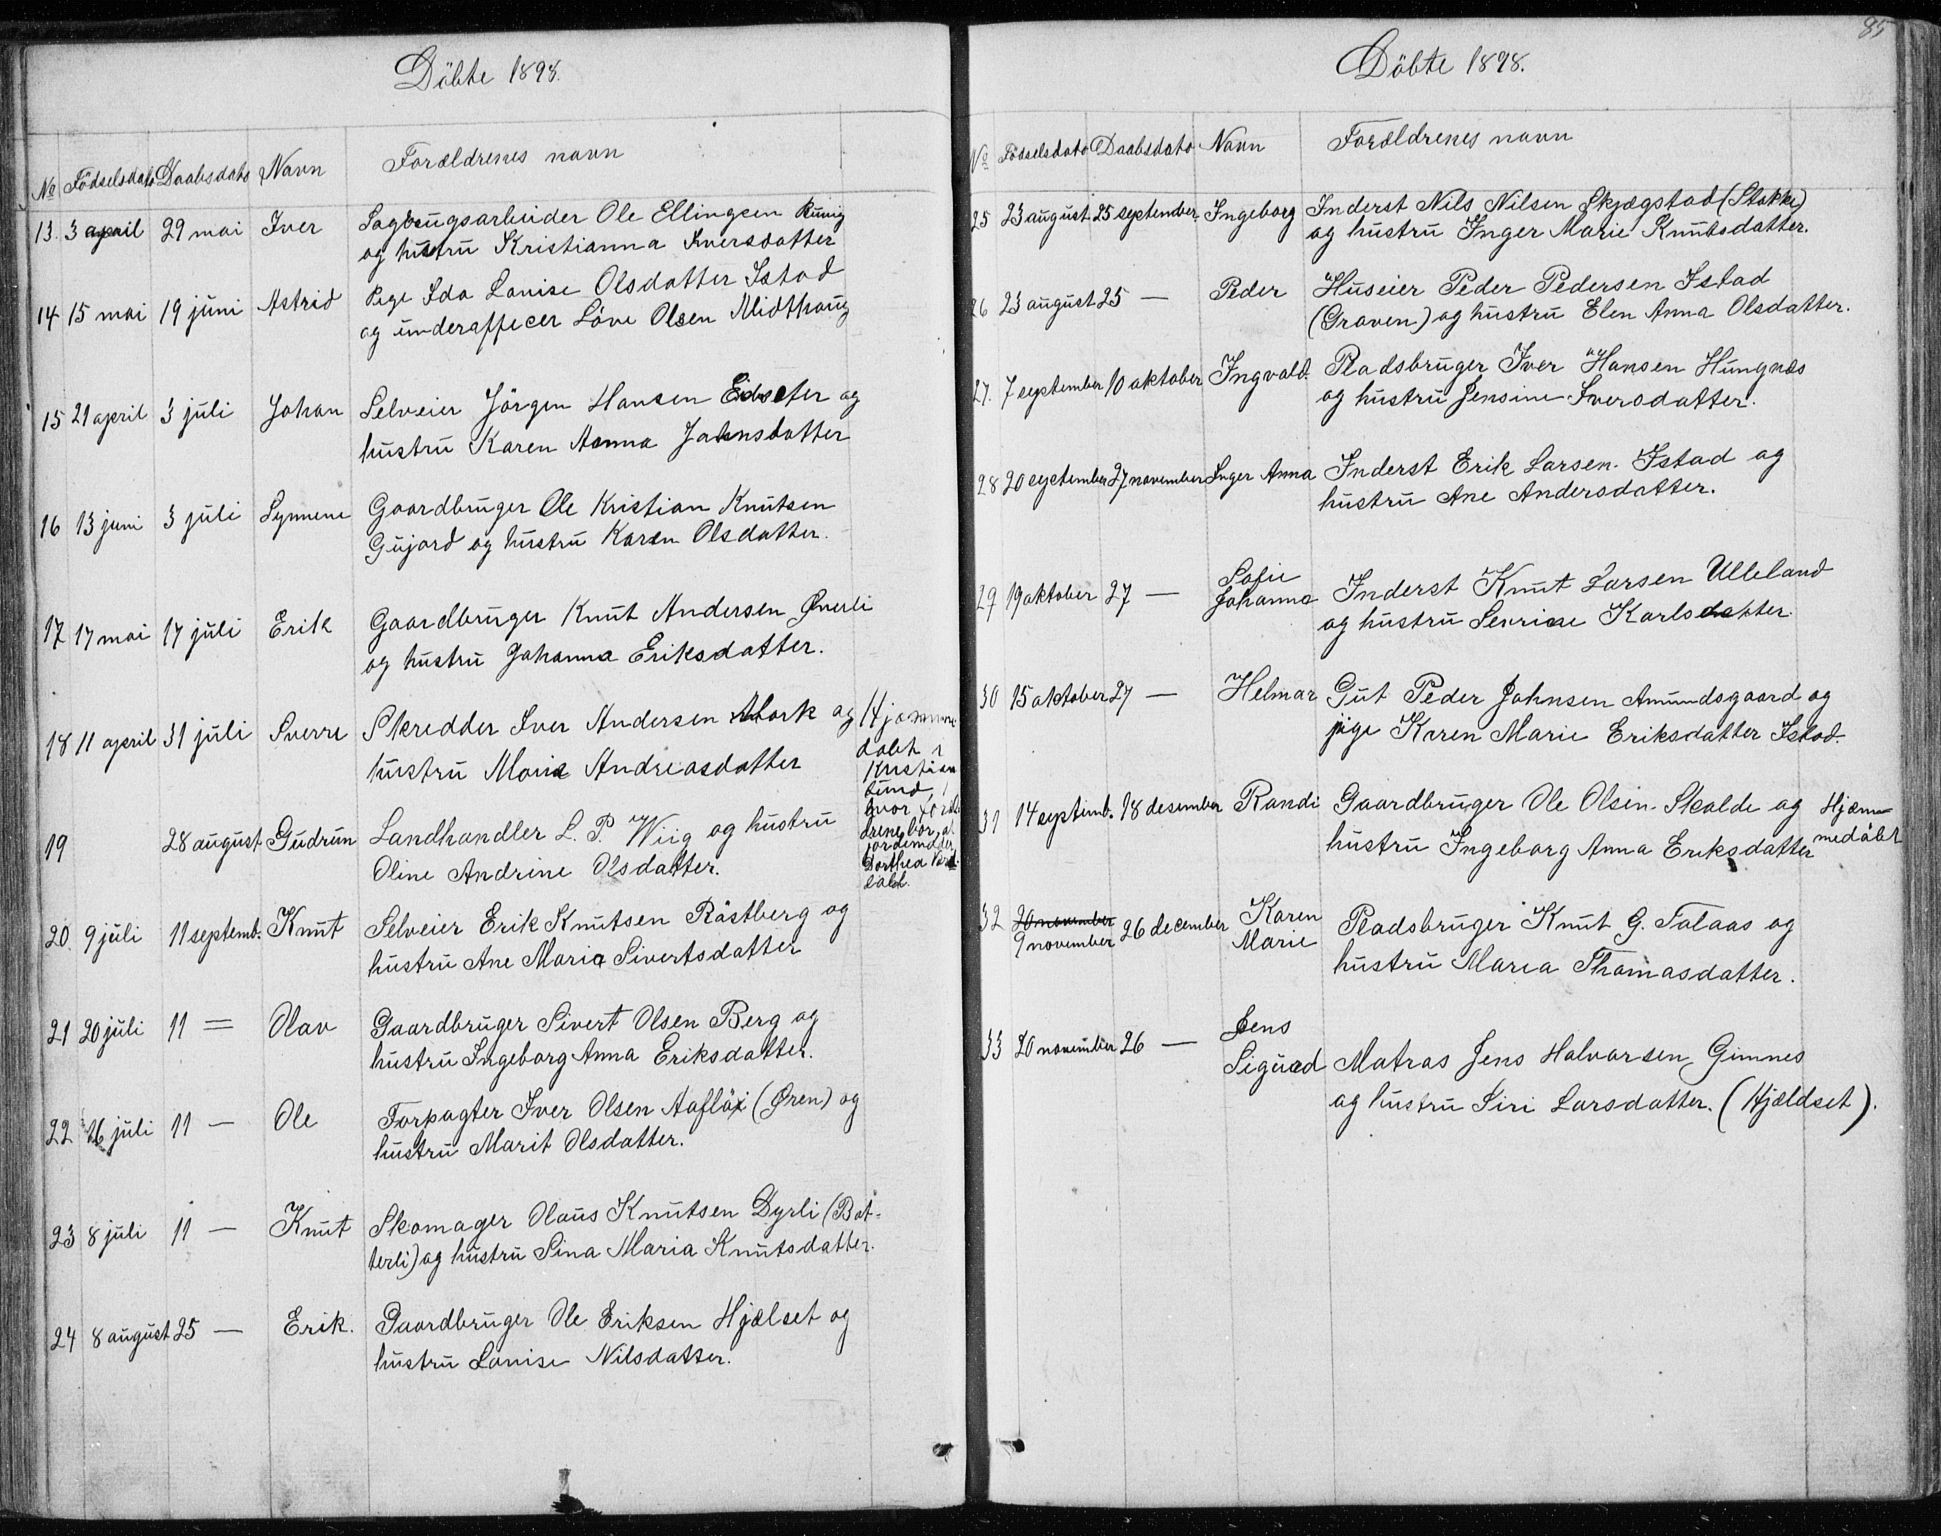 Döbte 1898.
№ Födselsdato Daabsdato Navn Forældrenes navn
13. 3 april 29 mai Iver Sagbrugsarbeider Ole Ellingsen
og hustru Kristianna Iversdatter
14 15 mai 19 juni Astrid Pige Ida Lovise Olsdatter Istad
og underofficer Löve Olsen Midthaug
15 21 april 3 juli Johan Selveier Jörgen Hansen Eidseter og
hustru Karen Anna Johnsdatter
16 13 juni 3 juli Synnene Gaardbruger Ole Kristian Knutsen
Gujord og hustru Karen Olsdatter.
17 17 mai 17 juli Erik Gaardbruger Knut Andersen Øverli
og hustru Johanna Eriksdatter.
18 11 april 31 juli Sverre Skredder Iver Andersen Mork og
hustru Marie Andreasdatter
Hjemme
döbt i
Kristian
sund,
hvor foræl
drene bor, af
jordemoder
Dorthea
19 28 august Gudrun Landhandler L. P. Wiig og hustru
Oline Andrine Olsdatter.
20. 9 juli 11 septemb. Knut Selveier Erik Knutsen Råstberg og
hustru Ane Maria Sivertsdatter
21 20 juli 11 = Olav Gaardbruger Sivert Olsen Berg og
hustru Ingeborg Anna Eriksdatter.
22 16 juli 11 — Ole Forpagter Iver Olsen Aaflöi (Øren) og
hustru Marit Olsdatter.
23 8 juli 11 — Knut Skomager Olaus Knutsen Dyrli (Bat-
terli) og hustru Sina Maria Knutsdatter.
24 8 august 25 — Erik. Gaardbruger Ole Eriksen Hjælset og
hustru Lovise Nilsdatter.
85
Döbte 1898.
№ Födselsdato Daabsdato Navn Forældrenes navn
25 23 august 25 september. Ingeborg Inderst Nils Nilsen Skjægstad (Stokke)
og hustru Inger Marie Knutsdatter.
26 23 august 25 — Peder Huseier Peder Pedersen Istad
(Graven) og hustru Elen Anna Olsdatter.
27. 7 september 10 oktober Ingvald. Pladsbruger Iver Hansen Hungnæs
og hustru Jensine Iversdatter.
28 20 september 27 november Inger Anna Inderst Erik Larsen Istad og
hustru Ane Andersdatter.
29 19 oktober 27 — Sofie
Johanna Inderst Knut Larsen Ulleland
og hustru Serrine Karlsdatter.
30 15 oktober 27 — Helmar Gut Peder Johnsen Amundsgaard og
pige Karen Marie Eriksdatter Istad.
31 14 septemb. 18 desember Randi Gaardbruger Ole Olsen Skalde og
hustru Ingeborg Anna Eriksdatter
Hjem-
medöbt
32 20 november
9 november 26 december Karen
Marie Pladsbruger Knut G. Talaas og
hustru Maria Thomasdatter.
33 20 november 26 — Jens
Sigurd Matros Jens Halvorsen Gimnes
og hustru Siri Larsdatter. (Hjældset).